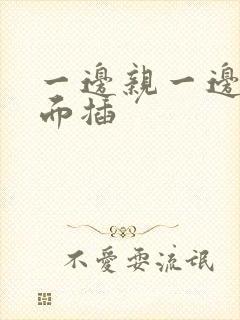 一邊親一邊
而插
不愛耍流氓